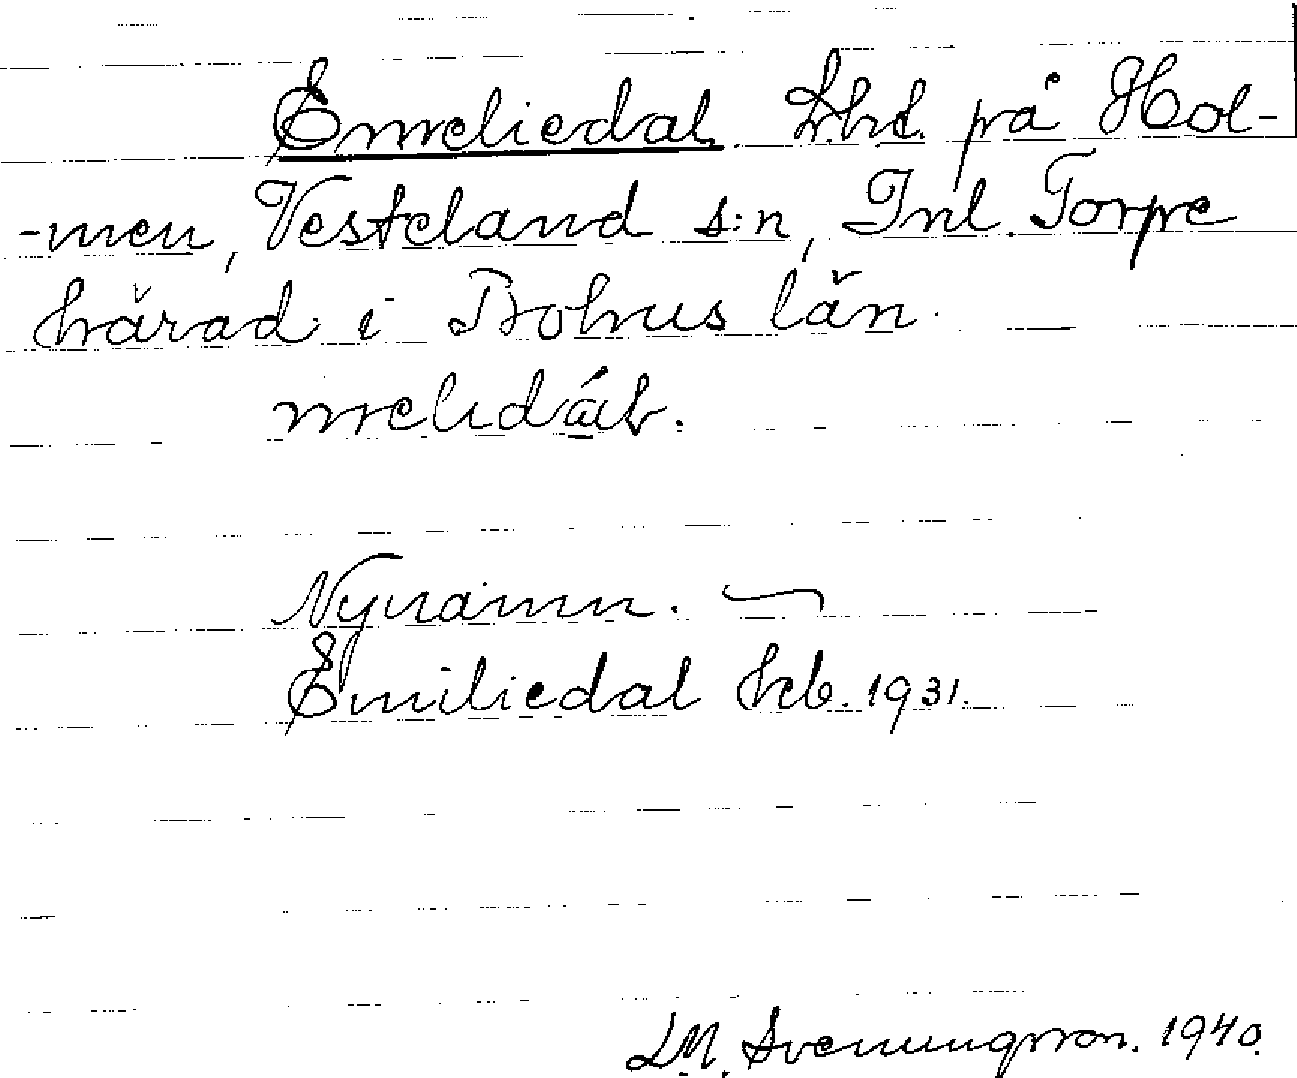 Emeliedal. Lht. på Hol-
-men, Vesteland s:n, Inl. Torpe
härad i Bohus län.
meludáb.
Nynamn.
Emiliedal hcb. 1931.
LM. Svenungsson. 1940.